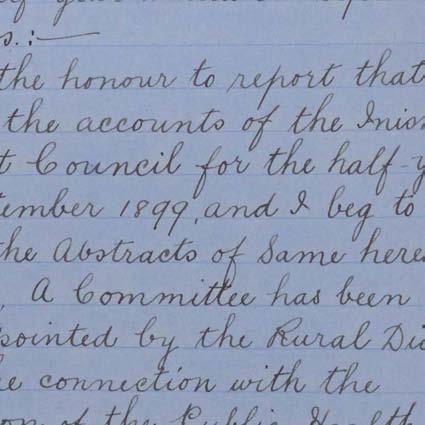 s.:—
the honour to report that
the accounts of the Inis
t Council for the half-y
tember 1899, and I beg to
the Abstracts of Same here
, A Committee has been
pointed by the Rural Di
e connection with the
on of the Public Health